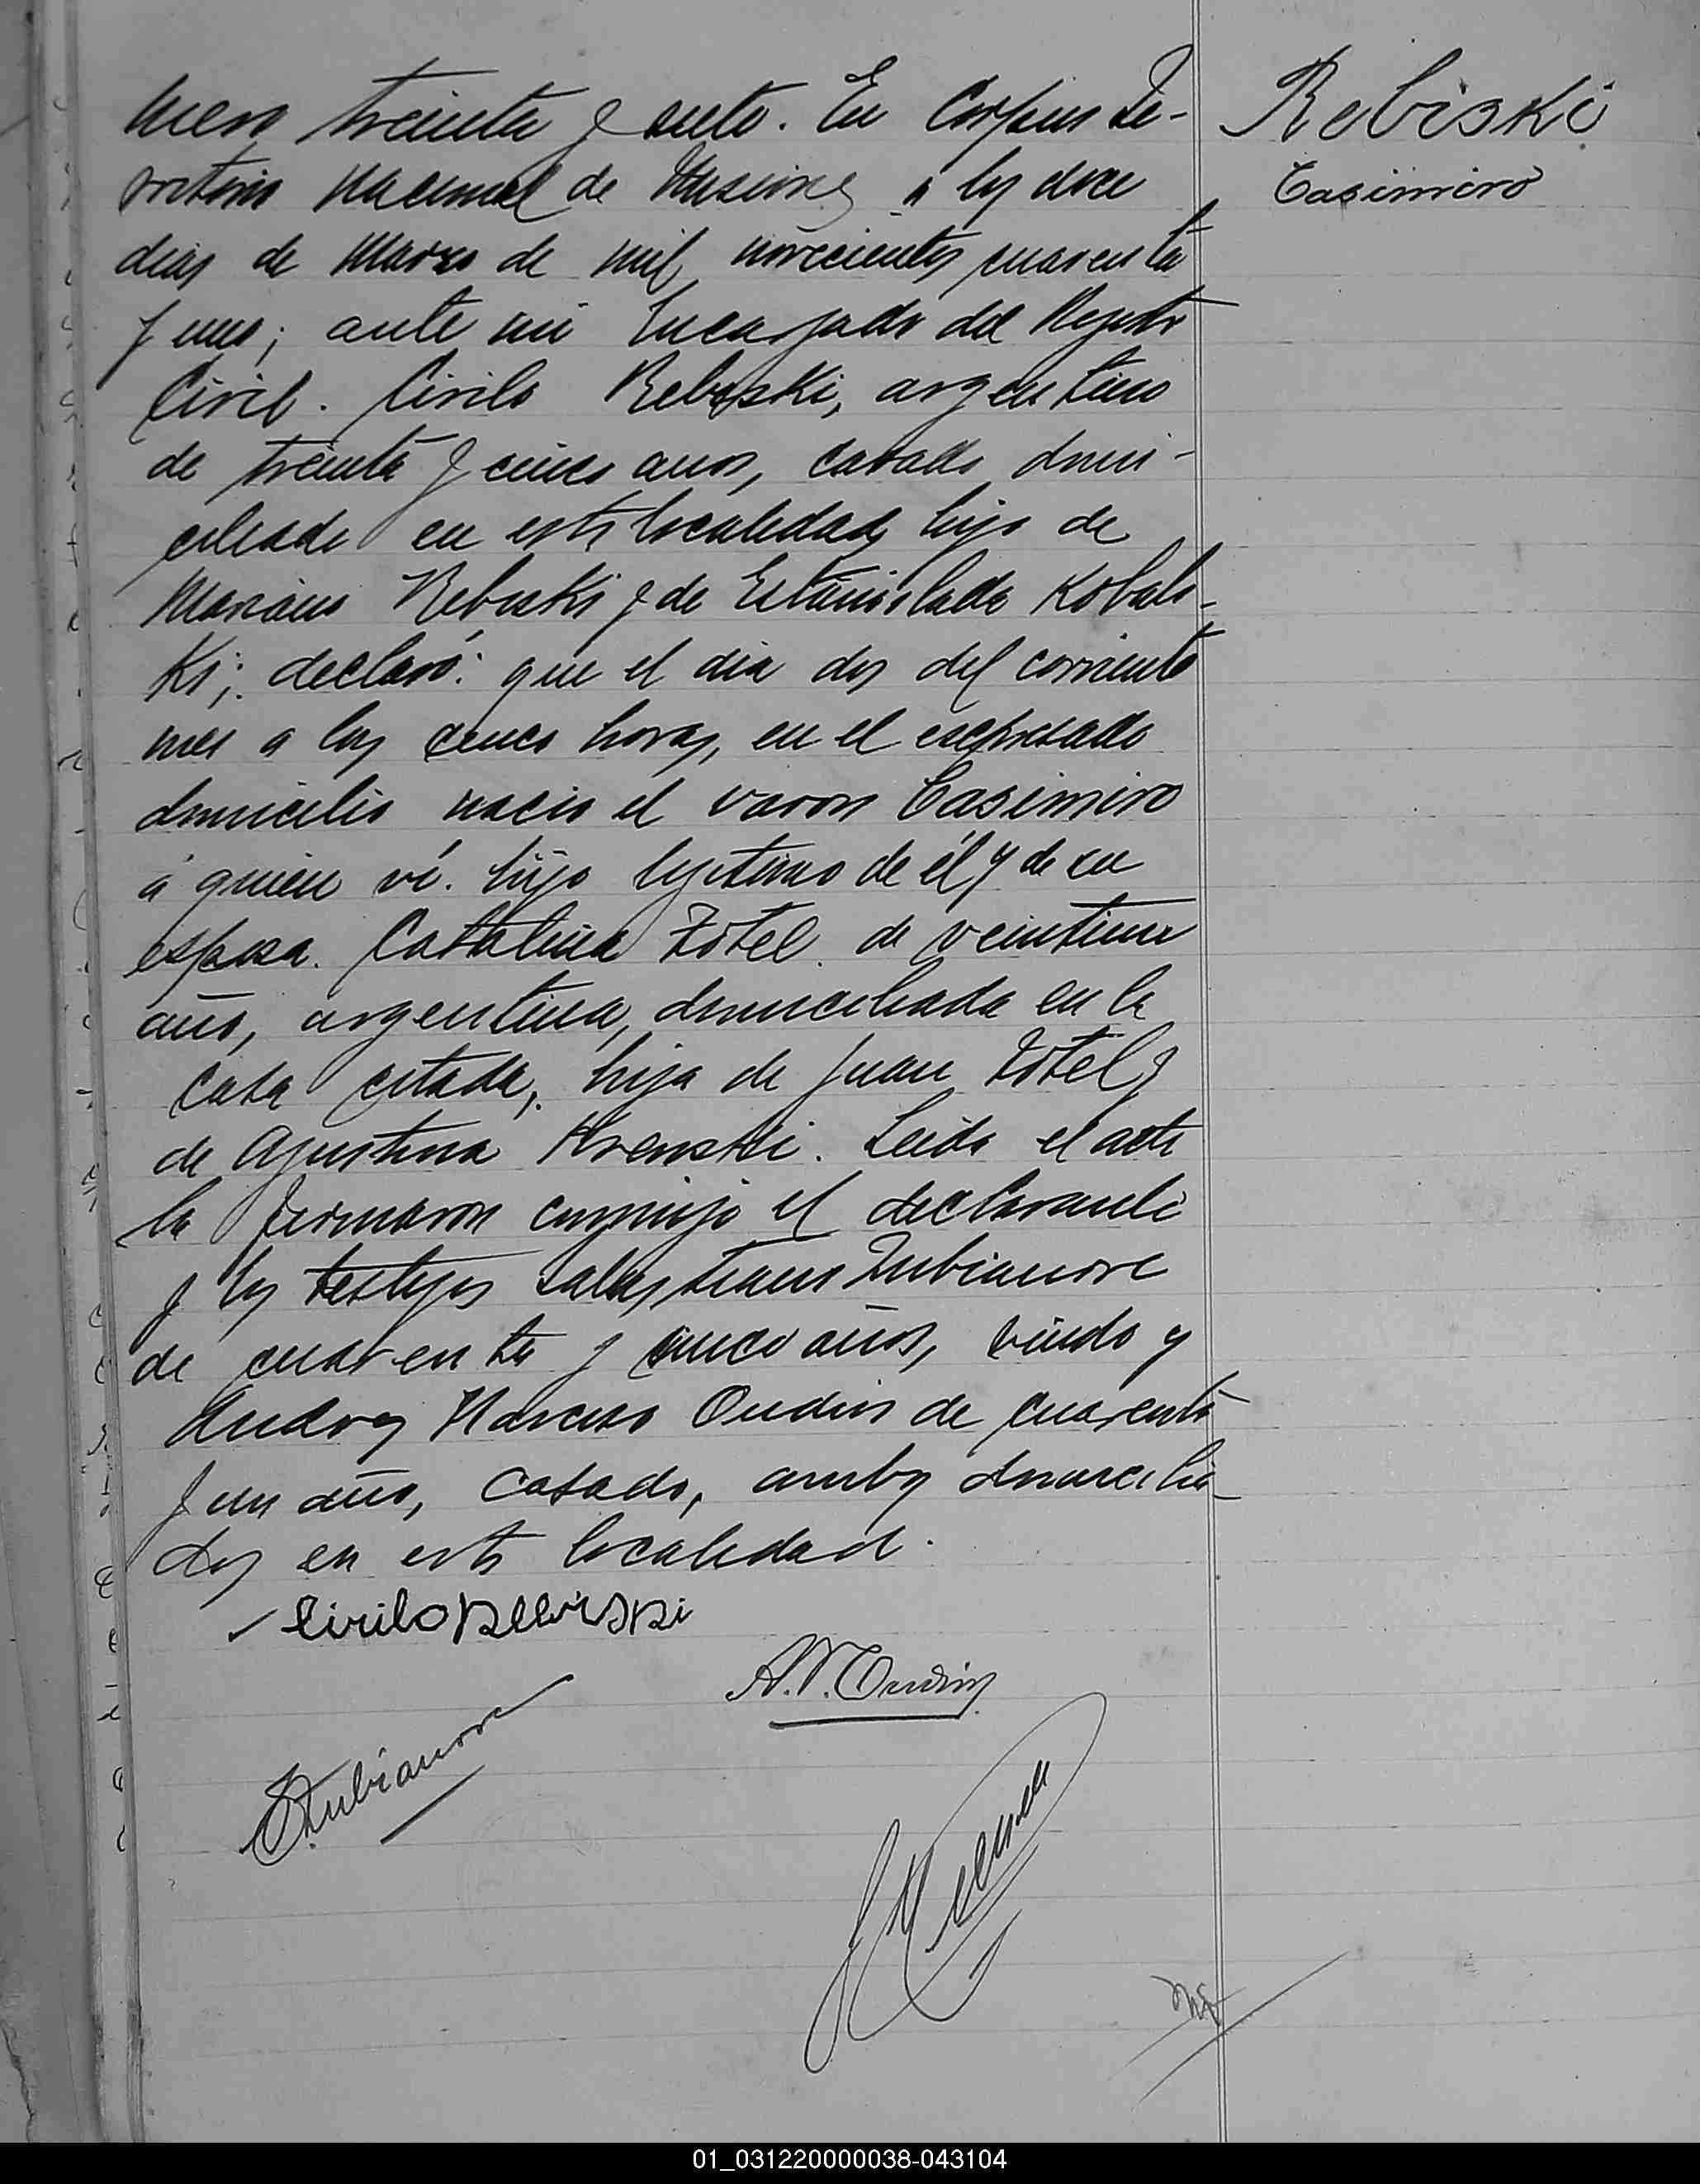 Rebiski
Casimiro
mero treinta y siete. En Corpus Te-
rritorio Nacional de Misiones a los doce
dias de Marzo de mil novecientos cuarenta
y uno; ante mi Encargado del Registro
Civil. Cirilo Rebiski, argentino
de treinta y cinco anos, casado domi-
ciliado en esta localidad, hijo de
Mariano Rebiski y de Estanislada Kobals-
ki; declaró: que el dia dos del corriente
mes a las cinco horas, en el expresado
domicilio nacio el varon Casimiro
á quien ví. hijo legitimo de él y de su
esposa. Catalina Zotel. de veintiun
año, argentina, domiciliada en la
casa citada, hija de Juan Zotel y
de Agustina. Leida el acta
la firmaron conmigo el declarante
y los testigos Salustiano Zubianore
de cuarenta y cinco años, viudo y
Andres Narciso Oudin de cuarenta
y un año, casado, ambos domicilia-
dos en esta localidad.
Cirilo Rebiski
A.N. Oudin
S Zubianore
01_031220000038-043104